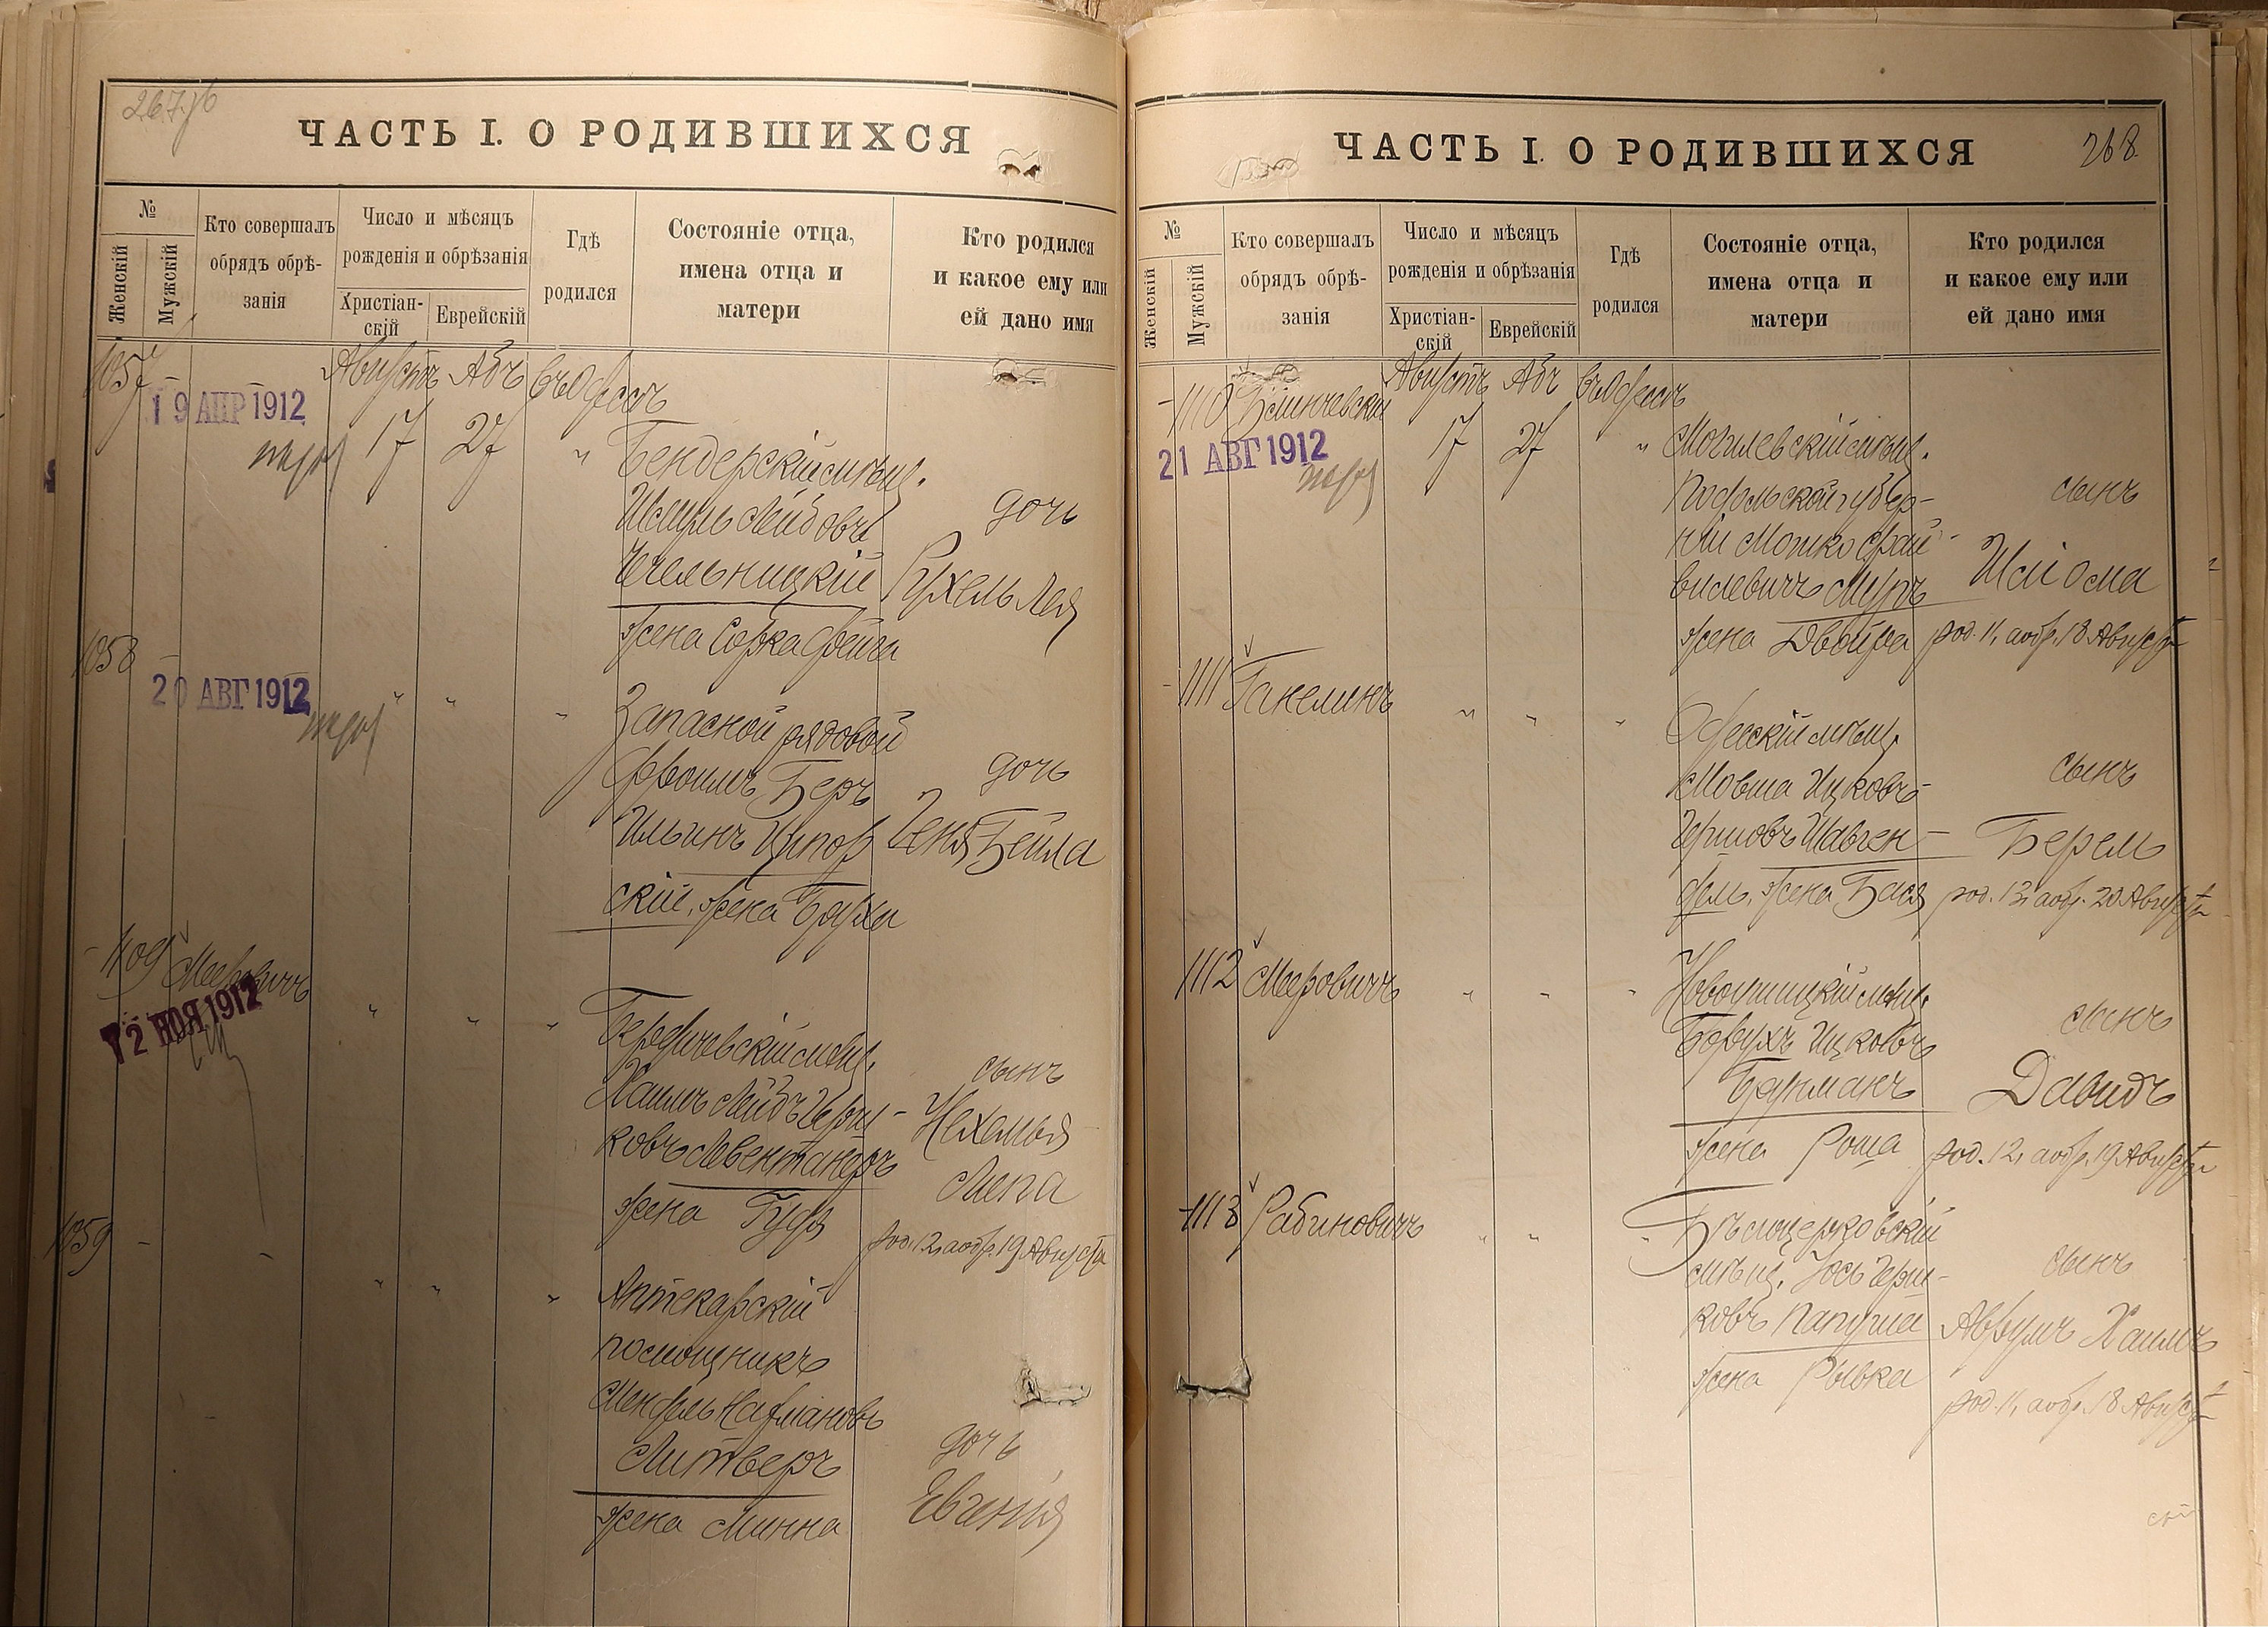 ЧАСТЬ I. О РОДИВШИХСЯ
№
Женскій
Мужскій
Кто совершалъ
обрядъ обрѣ-
занія
Число и мѣсяцъ
рожденія и обрѣзанія
Христіан-
скій
Еврейскій
Гдѣ
родился
Состояніе отца,
имена отца и
матери
Кто родился
и какое ему или
ей дано имя
1057 -
19 АПР 1912
Августъ Абъ Въ Одессѣ
17 27 "
Бендерскій мѣщ.
Лейбовъ
Чечельницкій
жена Сорка Фейга
дочь
Рухель Лея
1058 -
20 АВГ 1912
" " "
Запасной рядовой
Фроимъ Беръ
Ильинъ
скій, жена Бруха
дочь
Геня Бейла
- 1109 Мееровичъ
12 НОЯ 1912
" " "
Бердичевскій мѣщ.
Хаимъ Лейбъ Герш-
ковъ Левентанеръ
жена Гудя
сынъ
Нехамья
Липа
род. 12, а обр. 19 Августа
1059 - -
" " "
Аптекарскій
помощникъ
Мендель Нахмановъ
Литверъ
жена Минна
дочь
Евгенія
ЧАСТЬ I. О РОДИВШИХСЯ
268.
№
Женскій
Мужскій
Кто совершалъ
обрядъ обрѣ-
занія
Число и мѣсяцъ
рожденія и обрѣзанія
Христіан-
скій
Еврейскій
Гдѣ
родился
Состояніе отца,
имена отца и
матери
Кто родился
и какое ему или
ей дано имя
- 1110
21 АВГ 1912
Августъ Абъ Въ Одессѣ
17 27 "
Могилевскій мѣщ.
Подольской губер-
ніи Мошко Фай-
вилевичъ Муръ
жена Двойра
сынъ
Шліома
род. 11, а обр. 18 Августа
- 1111 Ганелинъ
" " "
Одесскій мѣщ.
Мовша Ицковъ-
Гершовъ Шавген-
дель, жена Бася
сынъ
Берель
род. 13, а обр. 20 Августа
1112 Мееровичъ
" " "
Новоушицкій мѣщ.
Борухъ Ицковъ
жена Роша
сынъ
Давидъ
род. 12, а обр. 19 Августа
- 1113 Рабиновичъ
" " "
Бѣлоцерковскій
мѣщ. Іось Герш-
ковъ Папуша
жена Рывка
сынъ
Аврумъ Хаимъ
род. 11, а обр. 18 Августа